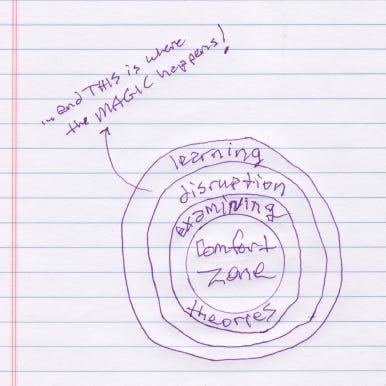 ...and THIS is where
the MAGIC happens!
learning
disruption
examining
Comfort
Zone
theories